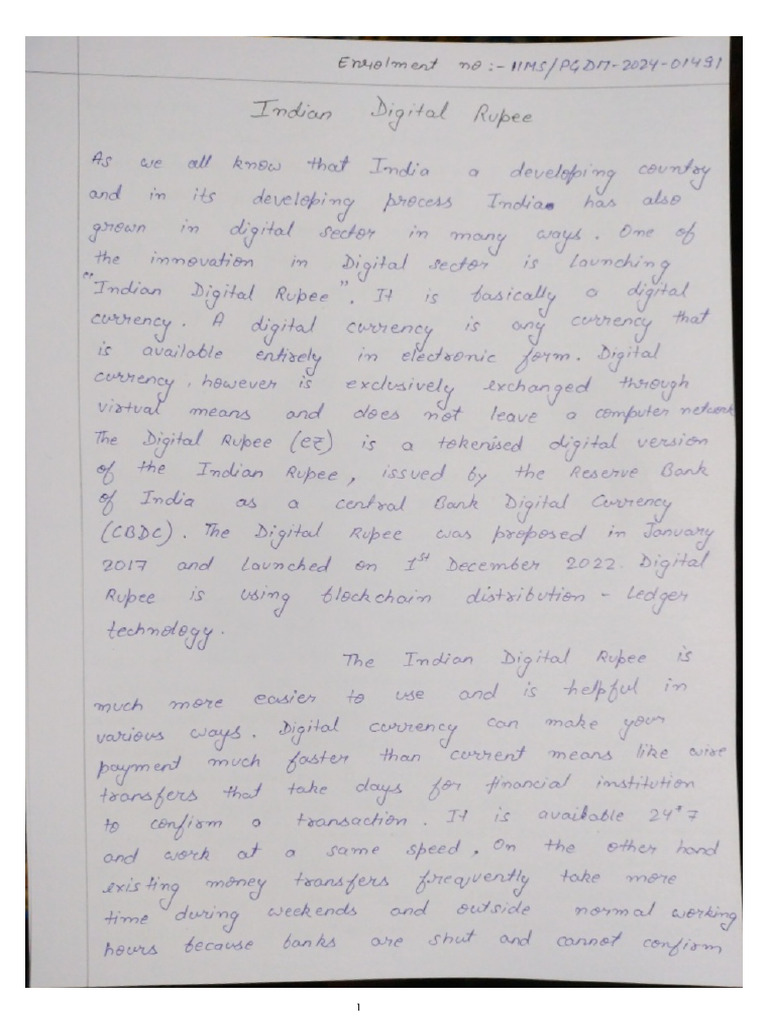 Enrolment no :- IIMS/PGDM-2024-01491
Indian Digital Rupee
As we all know that India a developing country
and in its developing process India has also
grown in digital sector in many ways. One of
the innovation in Digital sector is launching
"Indian Digital Rupee". It is basically a digital
currency. A digital currency is any currency that
is available entirely in electronic form. Digital
currency, however is exclusively exchanged through
virtual means and does not leave a computer network
The Digital Rupee (e₹) is a tokenised digital version
of the Indian Rupee, issued by the Reserve Bank
of India as a central Bank Digital Currency
(CBDC). The Digital Rupee was proposed in January
2017 and launched on 1st December 2022. Digital
Rupee is using blockchain distribution - Ledger
technology.
The Indian Digital Rupee is
much more easier to use and is helpful in
various ways. Digital currency can make your
payment much faster than current means like wire
transfers that take days for financial institution
to confirm a transaction. It is available 24*7
and work at a same speed, On the other hand
existing money transfers frequently take more
time during weekends and outside normal working
hours because banks are shut and cannot confirm
1